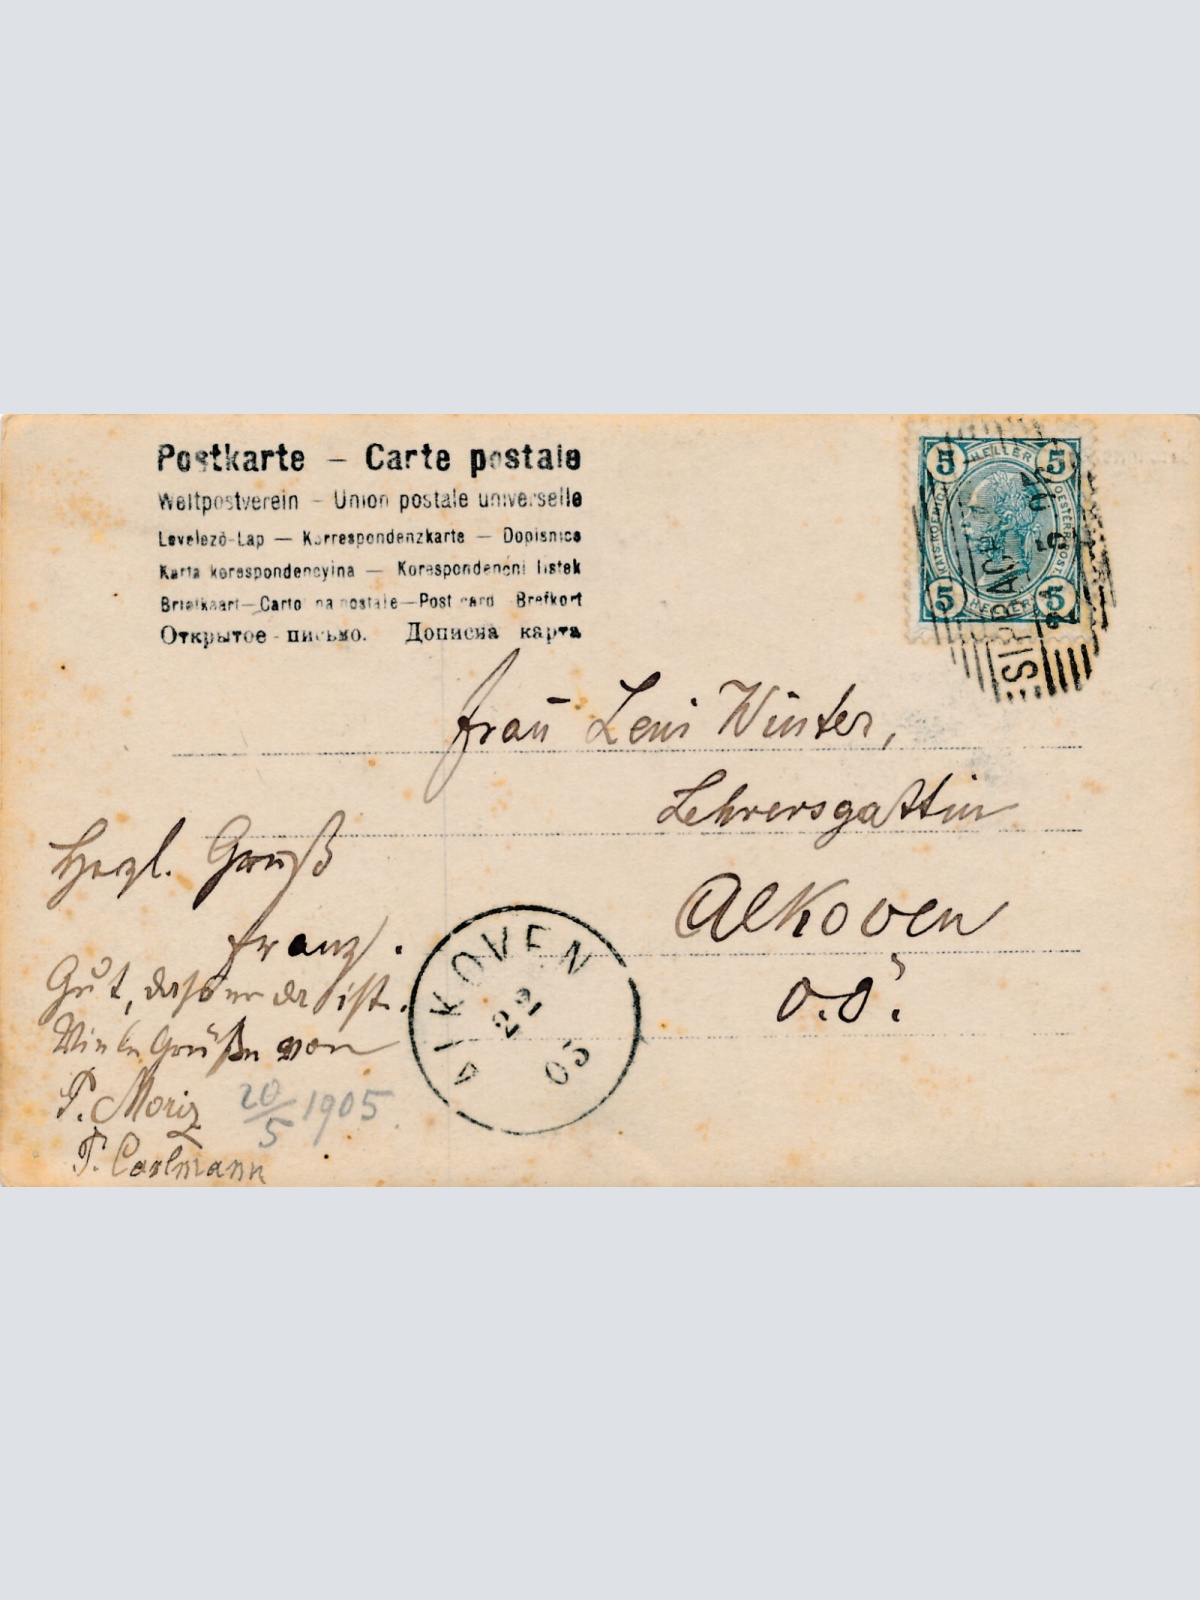 Postkarte – Carte postale
Weltpostverein – Union postale universelle
Levelező-Lap — Korrespondenzkarte — Dopisnice
Karta korespondencyjna — Korespondenční lístek
Briefkaart — Cartolina postale — Post card Brefkort
Открытое письмо. Дописна карта
5 HELLER 5
KAISERL. KOENIGL. OESTERR. POST.
5 HELLER 5
SIPBACH
5 05
Frau Leni Winter,
Lehrersgattin
Alkoven
O.Ö.
Herzl. Gruß
Franz.
Gut, daß er da ist.
Viele Grüße von
P. Moriz
20/5 1905
P. Carlmann
ALKOVEN
22
05